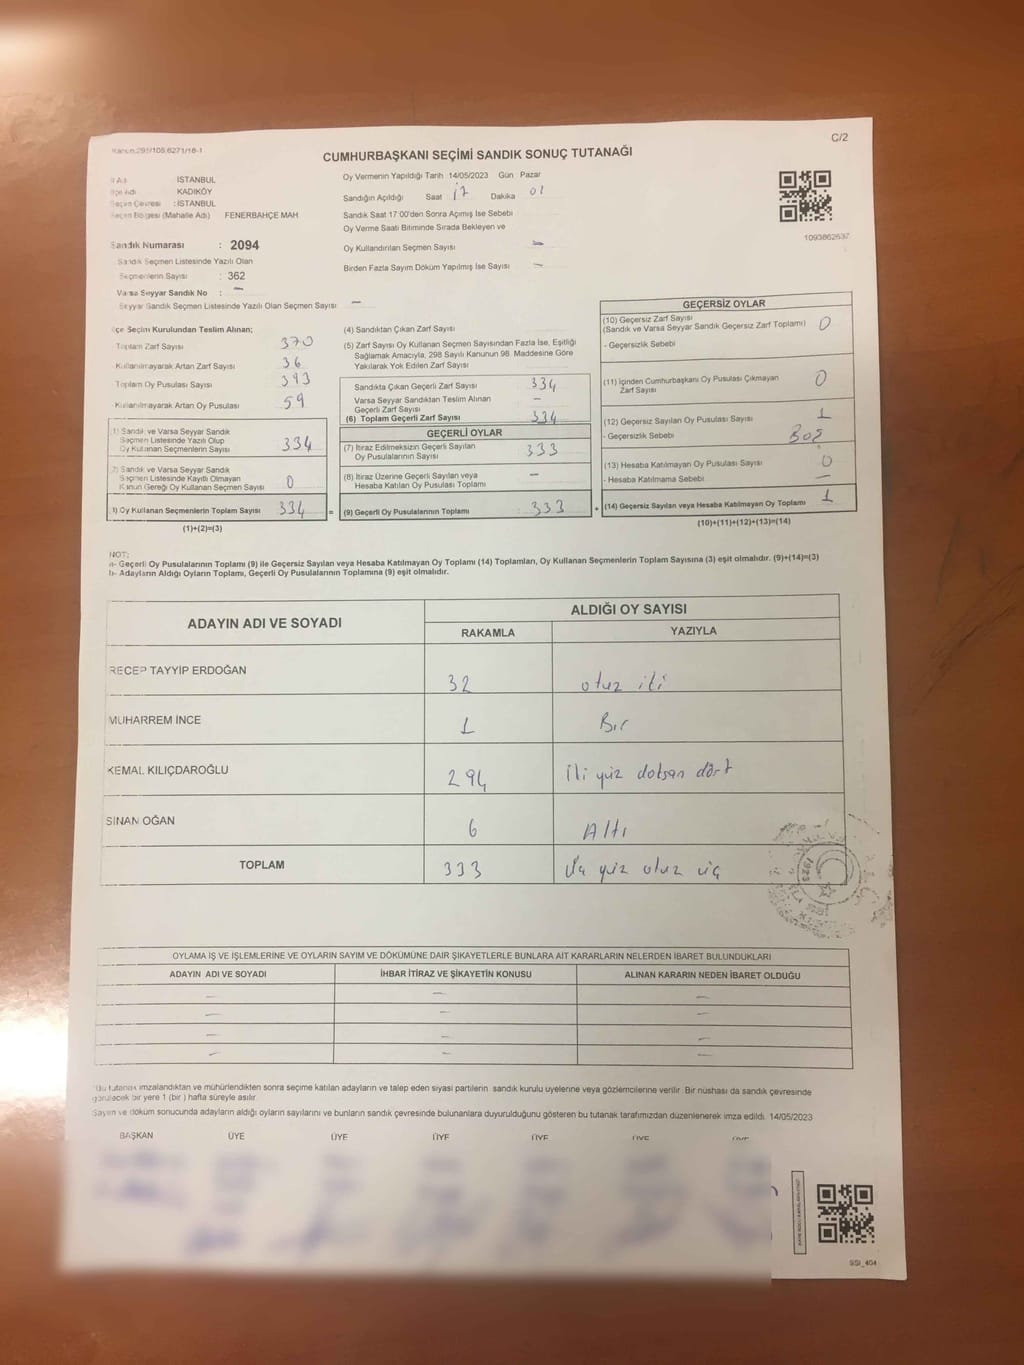 Kanun:298/108;6271/16-1
C/2
CUMHURBAŞKANI SEÇİMİ SANDIK SONUÇ TUTANAĞI
İl Adı İSTANBUL
İlçe Adı KADIKÖY
Seçim Çevresi : İSTANBUL
Seçim Bölgesi (Mahalle Adı) FENERBAHÇE MAH
Sandık Numarası : 2094
Sandık Seçmen Listesinde Yazılı Olan
Seçmenlerin Sayısı : 362
Varsa Seyyar Sandık No : –
Seyyar Sandık Seçmen Listesinde Yazılı Olan Seçmen Sayısı : –
Oy Vermenin Yapıldığı Tarih 14/05/2023 Gün Pazar
Sandığın Açıldığı Saat 17 Dakika 01
Sandık Saat 17:00'den Sonra Açımış İse Sebebi
Oy Verme Saati Bitiminde Sırada Bekleyen ve
Oy Kullandırılan Seçmen Sayısı –
Birden Fazla Sayım Döküm Yapılmış İse Sayısı –
1093862637
İlçe Seçim Kurulundan Teslim Alınan;
Toplam Zarf Sayısı 370
Kullanılmayarak Artan Zarf Sayısı 36
Toplam Oy Pusulası Sayısı 393
Kullanılmayarak Artan Oy Pusulası 59
1) Sandık ve Varsa Seyyar Sandık
Seçmen Listesinde Yazılı Olup
Oy Kullanan Seçmenlerin Sayısı 334
2) Sandık ve Varsa Seyyar Sandık
Seçmen Listesinde Kayıtlı Olmayan
Kanun Gereği Oy Kullanan Seçmen Sayısı 0
3) Oy Kullanan Seçmenlerin Toplam Sayısı 334 =
(1)+(2)=(3)
(4) Sandıktan Çıkan Zarf Sayısı
(5) Zarf Sayısı Oy Kullanan Seçmen Sayısından Fazla İse, Eşitliği
Sağlamak Amacıyla, 298 Sayılı Kanunun 98. Maddesine Göre
Yakılarak Yok Edilen Zarf Sayısı
Sandıkta Çıkan Geçerli Zarf Sayısı 334
Varsa Seyyar Sandıktan Teslim Alınan
Geçerli Zarf Sayısı –
(6) Toplam Geçerli Zarf Sayısı 334
GEÇERLİ OYLAR
(7) İtiraz Edilmeksizin Geçerli Sayılan
Oy Pusulalarının Sayısı 333
(8) İtiraz Üzerine Geçerli Sayılan veya
Hesaba Katılan Oy Pusulası Toplamı –
(9) Geçerli Oy Pusulalarının Toplamı 333 +
GEÇERSİZ OYLAR
(10) Geçersiz Zarf Sayısı
(Sandık ve Varsa Seyyar Sandık Geçersiz Zarf Toplamı) 0
- Geçersizlik Sebebi
(11) İçinden Cumhurbaşkanı Oy Pusulası Çıkmayan
Zarf Sayısı 0
(12) Geçersiz Sayılan Oy Pusulası Sayısı 1
- Geçersizlik Sebebi BOŞ
(13) Hesaba Katılmayan Oy Pusulası Sayısı 0
- Hesaba Katılmama Sebebi –
(14) Geçersiz Sayılan veya Hesaba Katılmayan Oy Toplamı 1
(10)+(11)+(12)+(13)=(14)
NOT:
a- Geçerli Oy Pusulalarının Toplamı (9) ile Geçersiz Sayılan veya Hesaba Katılmayan Oy Toplamı (14) Toplamları, Oy Kullanan Seçmenlerin Toplam Sayısına (3) eşit olmalıdır. (9)+(14)=(3)
b- Adayların Aldığı Oyların Toplamı, Geçerli Oy Pusulalarının Toplamına (9) eşit olmalıdır.
ADAYIN ADI VE SOYADI ALDIĞI OY SAYISI
RAKAMLA YAZIYLA
RECEP TAYYİP ERDOĞAN 32 otuz iki
MUHARREM İNCE 1 Bir
KEMAL KILIÇDAROĞLU 294 İki yüz doksan dört
SİNAN OĞAN 6 Altı
TOPLAM 333 Üç yüz otuz üç
1923
OYLAMA İŞ VE İŞLEMLERİNE VE OYLARIN SAYIM VE DÖKÜMÜNE DAİR ŞİKAYETLERLE BUNLARA AİT KARARLARIN NELERDEN İBARET BULUNDUKLARI
ADAYIN ADI VE SOYADI İHBAR İTİRAZ VE ŞİKAYETİN KONUSU ALINAN KARARIN NEDEN İBARET OLDUĞU
– – –
– – –
– – –
– – –
Bu tutanak imzalandıktan ve mühürlendikten sonra seçime katılan adayların ve talep eden siyasi partilerin sandık kurulu üyelerine veya gözlemcilerine verilir. Bir nüshası da sandık çevresinde
görülecek bir yere 1 (bir ) hafta süreyle asılır.
Sayım ve döküm sonucunda adayların aldığı oyların sayılarını ve bunların sandık çevresinde bulunanlara duyurulduğunu gösteren bu tutanak tarafımızdan düzenlenerek imza edildi. 14/05/2023
BAŞKAN ÜYE ÜYE ÜYE ÜYE ÜYE ÜYE
SSI_404